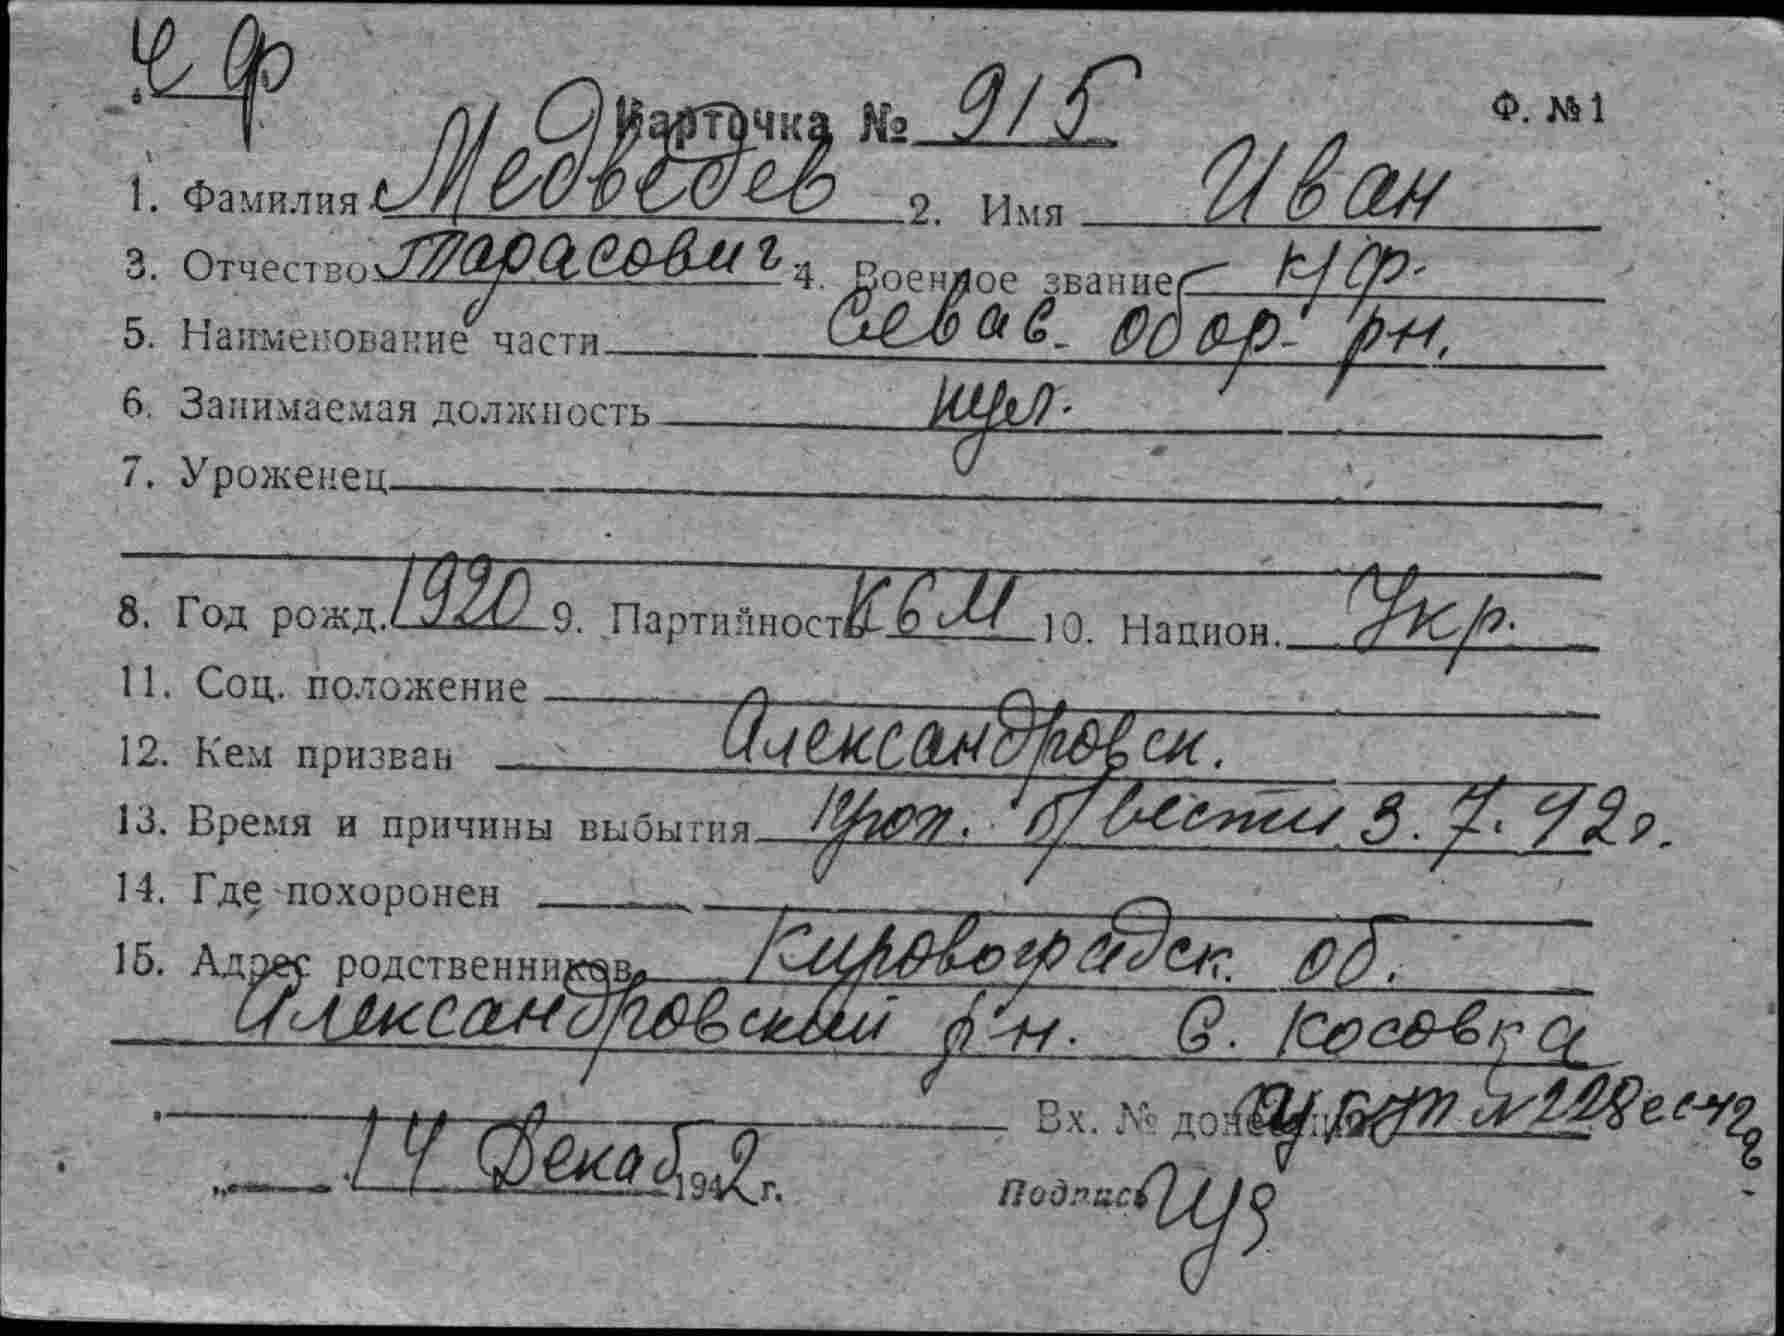 ЧФ
Карточка № 915 Ф. №1
1. Фамилия Медведев 2. Имя Иван
3. Отчество Тарасович 4. Военное звание к/ф.
5. Наименование части Севас. обор. рн.
6. Занимаемая должность
7. Уроженец
8. Год рожд. 1920 9. Партийность КСМ 10. Национ. Укр.
11. Соц. положение
12. Кем призван Александровск.
13. Время и причины выбытия Проп. б/вести 3.7.42г.
14. Где похоронен
15. Адрес родственников Кировоградск. об.
Александровский р-н. С. Косовка
Вх. № донесения №228
„ 14 Декаб 1942 г. Подпись